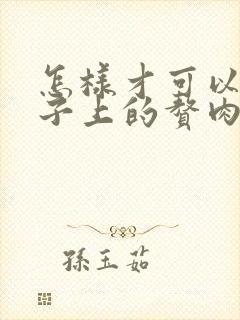 怎樣才可以
子上的贅肉
孫玉茹